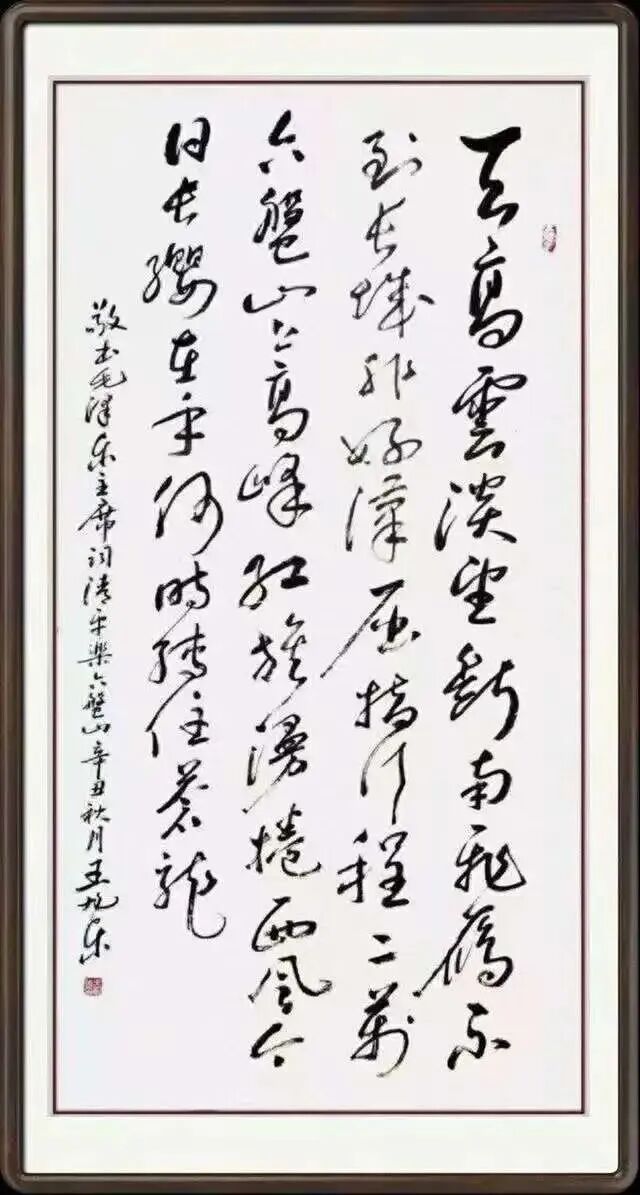 天高雲淡望斷南飛雁不
到長城非好漢屈指行程二萬
六盤山上高峰紅旗漫捲西風今
日長纓在手何時縛住蒼龍
敬書毛澤東主席詞清平樂六盤山辛丑秋月王旭東